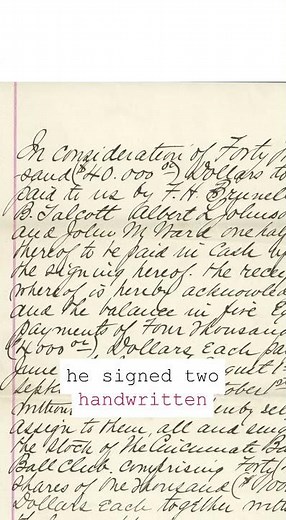 In consideration of Forty
sand ($40.000 00) Dollars to
paid to us by F. H. Brunel
B. Talcott Albert L Johnso
and John M Ward one hal
thereof to be paid in Cash up
the signing hereof. the recei
whereof is hereby acknowled
and the balance in five Eq
payments of Four Thousand
(4000 00), Dollars, Each pa
June
gust 1
he signed two
Sept
tober 1st
handwritten
withou
eby sell
assign to them, all and sing
the stock of the Cincinnate Ba
Ball Club. comprising Forty
shares of One Thousand ($1000
Dollars Each together with